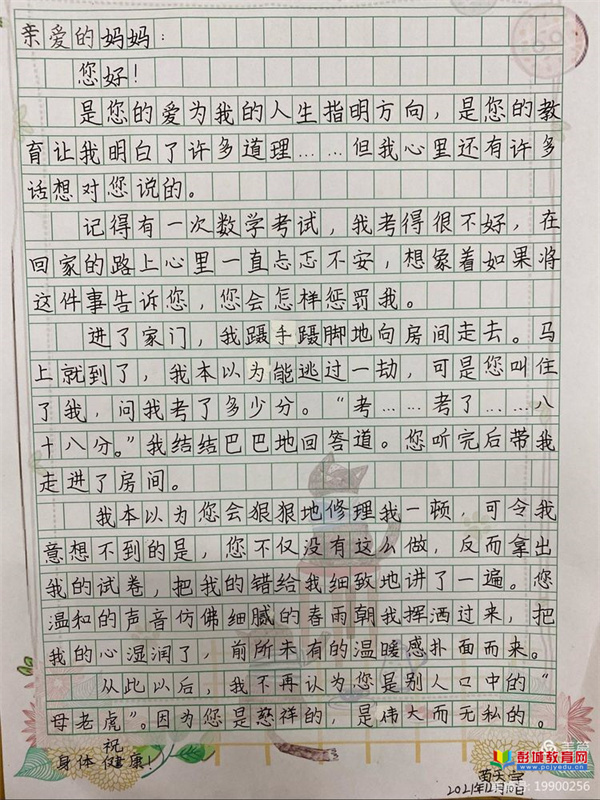 亲爱的妈妈：
您好！
是您的爱为我的人生指明方向，是您的教
育让我明白了许多道理……但我心里还有许多
话想对您说的。
记得有一次数学考试，我考得很不好，在
回家的路上心里一直忐忑不安，想象着如果将
这件事告诉您，您会怎样惩罚我。
进了家门，我蹑手蹑脚地向房间走去。马
上就到了，我本以为能逃过一劫，可是您叫住
了我，问我考了多少分。“考……考了……八
十八分。”我结结巴巴地回答道。您听完后带我
走进了房间。
我本以为您会狠狠地修理我一顿，可令我
意想不到的是，您不仅没有这么做，反而拿出
我的试卷，把我的错给我细致地讲了一遍。您
温和的声音仿佛细腻的春雨朝我挥洒过来，把
我的心湿润了，前所未有的温暖感扑面而来。
从此以后，我不再认为您是别人口中的“
母老虎”。因为您是慈祥的，是伟大而无私的。
祝
身体健康！
2021年12月10日
彭城教育网
www.pcjyedu.cn
19900256